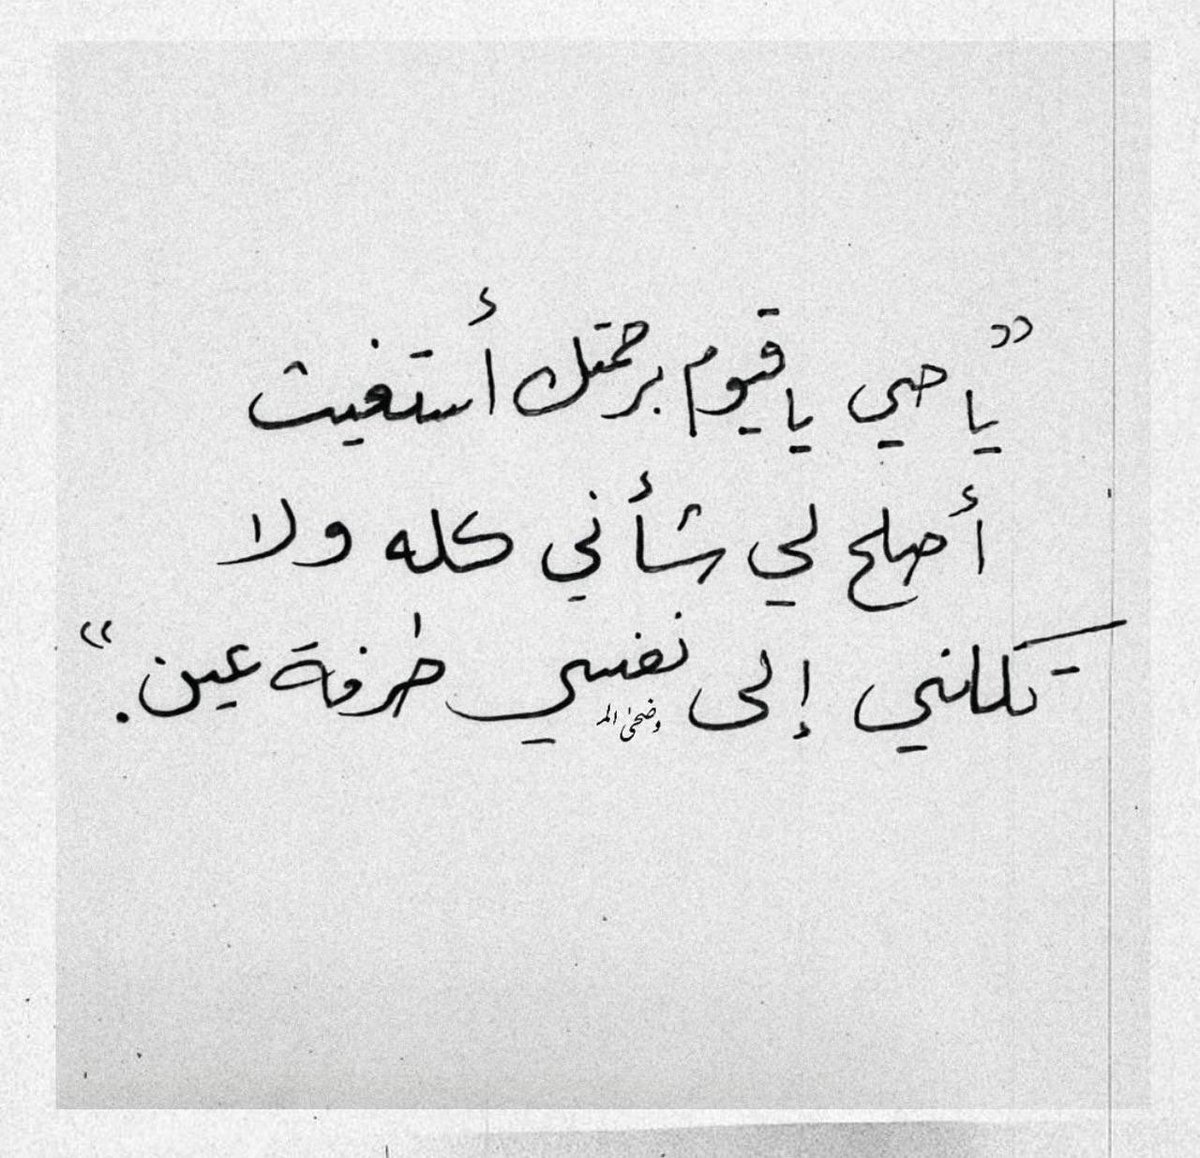 ”يا حي يا قيوم برحمتك أستغيث
أصلح لي شأني كله ولا
تكلني إلى نفسي طرفة عين.“